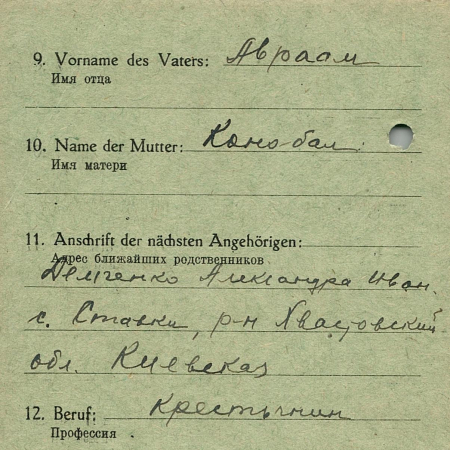 9. Vorname des Vaters: Авраам
Имя отца
10. Name der Mutter: Конобал
Имя матери
11. Anschrift der nächsten Angehörigen:
Адрес ближайших родственников.
Демченко Александра Иван.
с. Ставки, р-н Хвастовский
обл. Киевская
12. Beruf: Крестьянин
Профессия